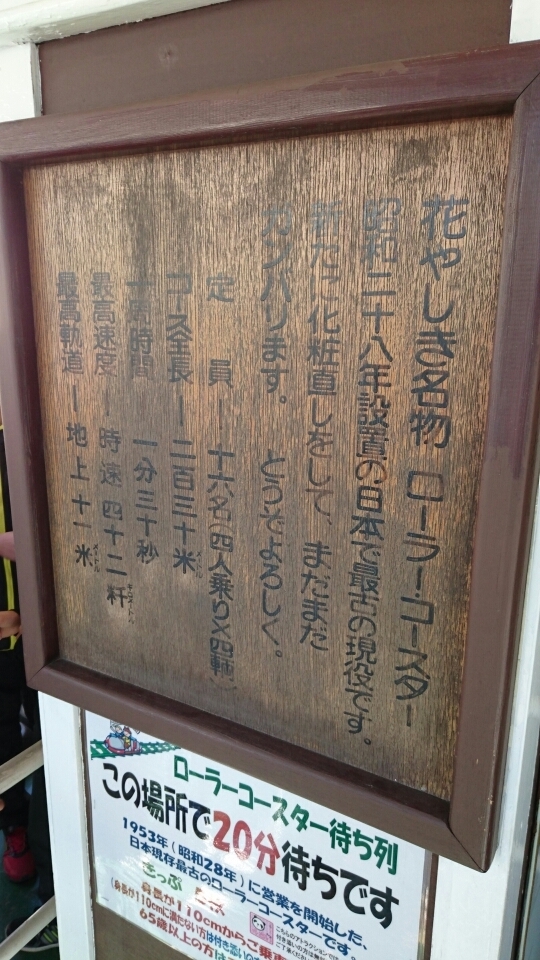 花やしき名物 ローラーコースター
昭和二十八年設置の日本で最古の現役です。
新たに化粧直しをして、まだまだ
ガンバリます。 どうぞよろしく。
定 員 ― 十六名(四人乗り×四輌)
コース全長 ― 二百三十米 メートル
時間 一分三十秒
最高速度 ― 時速 四十二粁 キロメートル
最高軌道 ― 地上 十一米 メートル
ローラーコースター待ち列
この場所で20分待ちです
1953年(昭和28年)に営業を開始した、
日本現存最古のローラーコースターです。
きっぷ
身長が110cmからご乗車
(身長が110cmに満たない方は付き添いの
65歳以上の方は